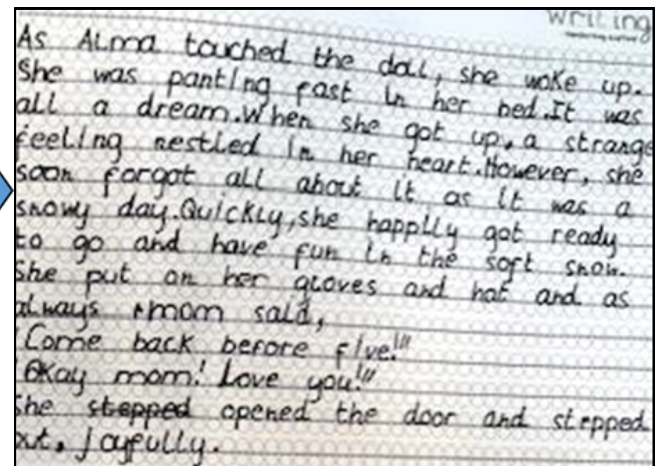 writing
As Alma touched the doll, she woke up.
She was panting fast in her bed.It was
all a dream.When she got up, a strange
feeling nestled in her heart.However, she
soon forgot all about it as it was a
snowy day.Quickly,she happily got ready
to go and have fun in the soft snow.
She put on her gloves and hat and as
always mom said,
"Come back before five!"
"Okay mom! Love you!"
She stepped opened the door and stepped
out, joyfully.